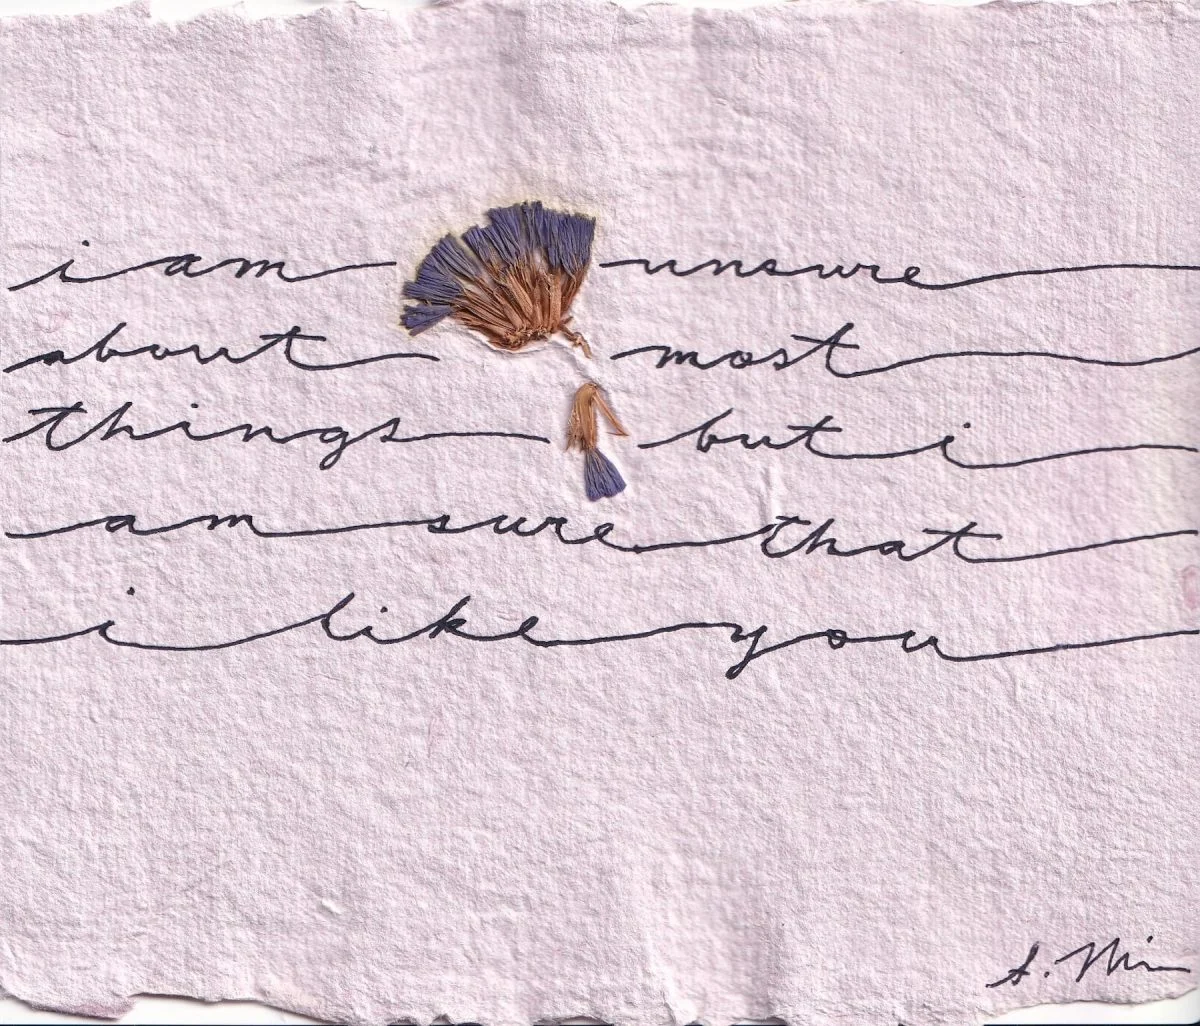 i am unsure
about most
things but i
am sure that
i like you